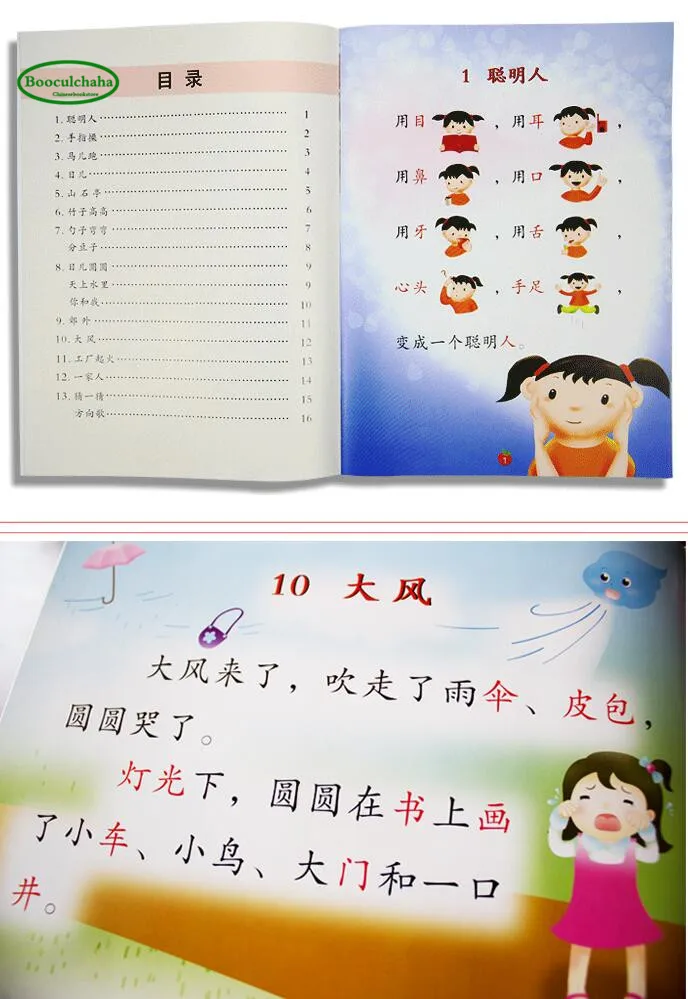 Booculchaha
Chinesebookstore
目 录
1. 聪明人 1
2. 手指操 2
3. 马儿跑 3
4. 日儿 4
5. 山石亭 5
6. 竹子高高 6
7. 勺子弯弯 7
分豆子 8
8. 日儿圆圆 9
天上水里 9
你和我 10
9. 郊外 11
10. 大风 12
11. 工厂起火 13
12. 一家人 14
13. 猜一猜 15
方向歌 16
1 聪明人
用目 ，用耳 ，
用鼻 ，用口 ，
用牙 ，用舌 ，
心头 ，手足 ，
变成一个聪明人。
1
10 大风
大风来了，吹走了雨伞、皮包，
圆圆哭了。
灯光下，圆圆在书上画
了小车、小鸟、大门和一口
井。